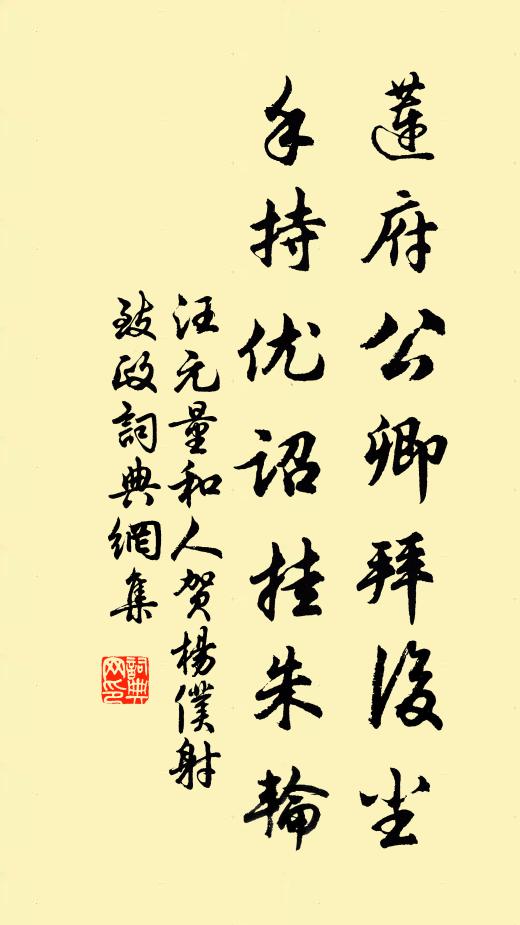 蓮府公卿拜後尘
手持优诏挂朱輪
汪元量和人贺楊僕射
致政詞典網集
詞典网印